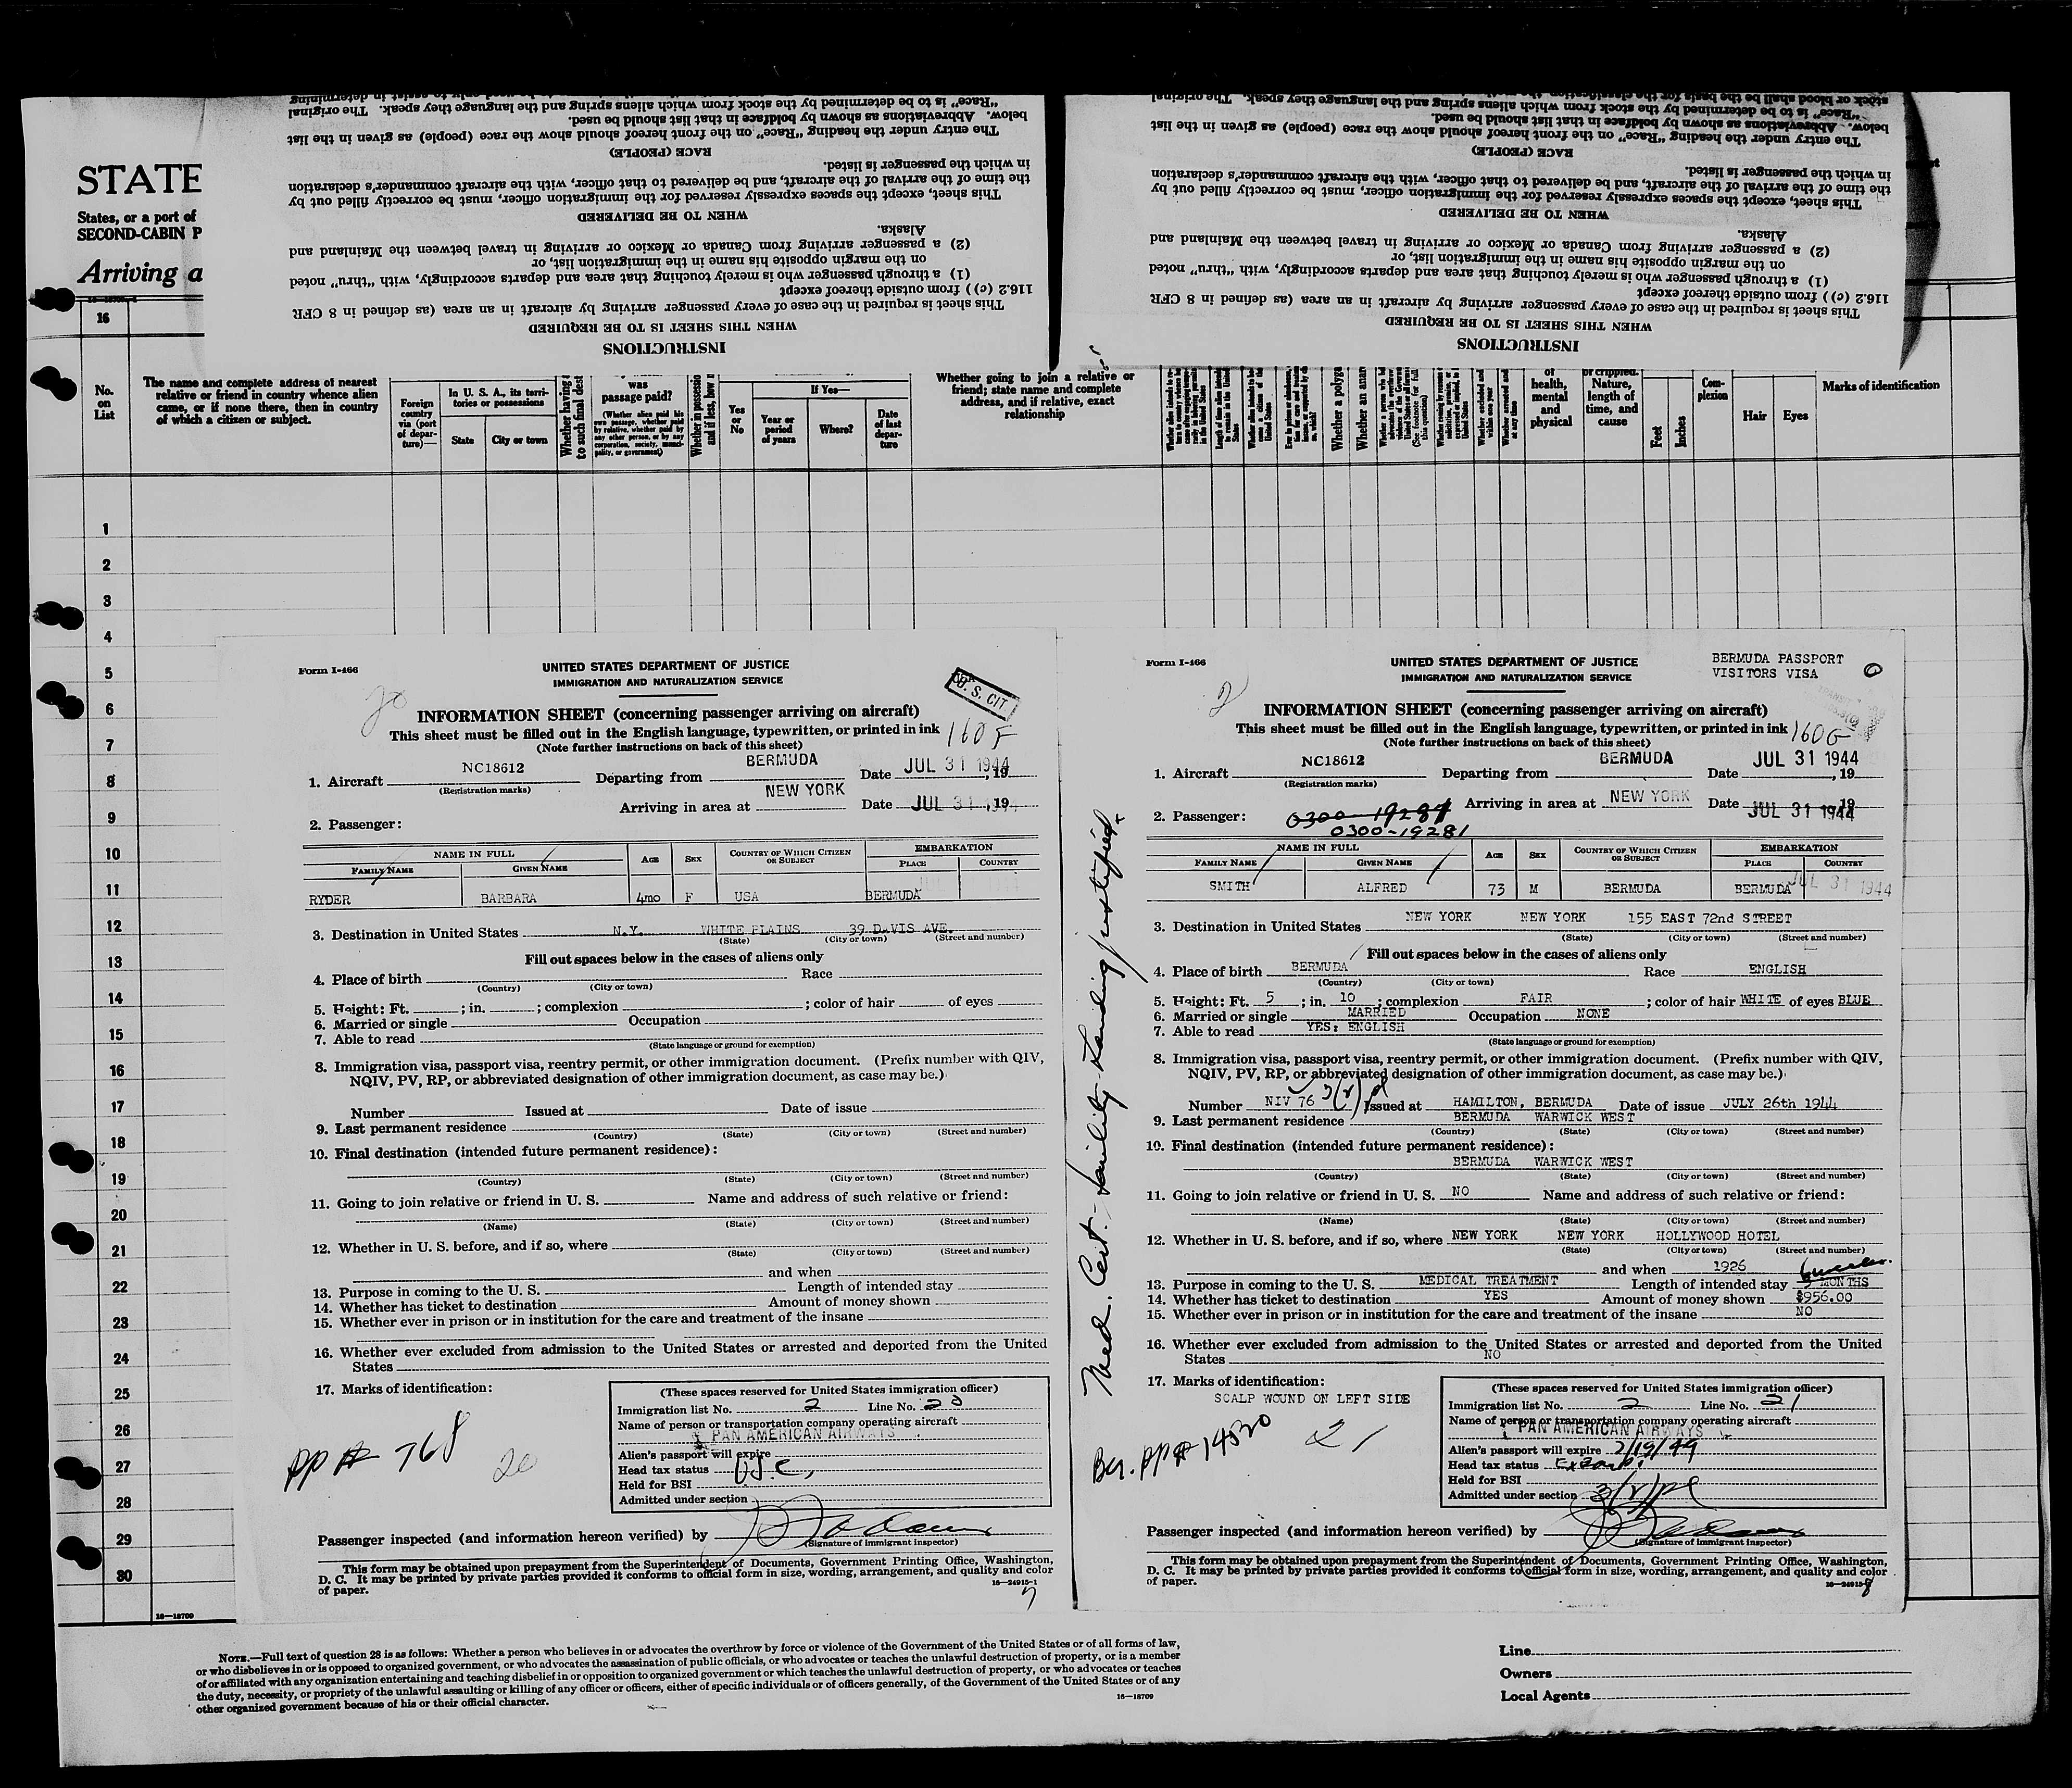 STATE
States, or a port of
SECOND-CABIN P
Arriving a
16
No. on List
The name and complete address of nearest relative or friend in country whence alien came, or if none there, then in country of which a citizen or subject.
Foreign country via (port of departure)—
In U. S. A., its territories or possessions
State
City or town
Whether having
to such final dest
was passage paid?
(Whether alien paid his own passage, whether paid by relative, whether paid by any other person, or by any corporation, society, municipality, or government)
Whether in possessio
and if less, how
Yes or No
If Yes—
Year or period of years
Where?
Date of last departure
Whether going to join a relative or friend; state name and complete address, and if relative, exact relationship
Whether a polyga
Whether an anar
of health, mental and physical
or crippled. Nature, length of time, and cause
Feet
Inches
Complexion
Hair
Eyes
Marks of identification
INSTRUCTIONS
WHEN THIS SHEET IS TO BE REQUIRED
This sheet is required in the case of every passenger arriving by aircraft in an area (as defined in 8 CFR
116.2 (c)) from outside thereof except
(1) a through passenger who is merely touching that area and departs accordingly, with "thru" noted
on the margin opposite his name in the immigration list, or
(2) a passenger arriving from Canada or Mexico or arriving in travel between the Mainland and
Alaska.
WHEN TO BE DELIVERED
This sheet, except the spaces expressly reserved for the immigration officer, must be correctly filled out by
the time of the arrival of the aircraft, and be delivered to that officer, with the aircraft commander's declaration
in which the passenger is listed.
RACE (PEOPLE)
The entry under the heading "Race" on the front hereof should show the race (people) as given in the list
below. Abbreviations as shown by boldface in that list should be used.
"Race" is to be determined by the stock from which aliens spring and the language they speak. The original
INSTRUCTIONS
WHEN THIS SHEET IS TO BE REQUIRED
This sheet is required in the case of every passenger arriving by aircraft in an area (as defined in 8 CFR
116.2 (c)) from outside thereof except
(1) a through passenger who is merely touching that area and departs accordingly, with "thru" noted
on the margin opposite his name in the immigration list, or
(2) a passenger arriving from Canada or Mexico or arriving in travel between the Mainland and
Alaska.
WHEN TO BE DELIVERED
This sheet, except the spaces expressly reserved for the immigration officer, must be correctly filled out by
the time of the arrival of the aircraft, and be delivered to that officer, with the aircraft commander's declaration
in which the passenger is listed.
RACE (PEOPLE)
The entry under the heading "Race" on the front hereof should show the race (people) as given in the list
below. Abbreviations as shown by boldface in that list should be used.
"Race" is to be determined by the stock from which aliens spring and the language they speak. The original
stock or blood shall be the basis for the classification
1
2
3
4
5
6
7
8
9
10
11
12
13
14
15
16
17
18
19
20
21
22
23
24
25
26
27
28
29
30
16—18709
Form I-466
UNITED STATES DEPARTMENT OF JUSTICE
IMMIGRATION AND NATURALIZATION SERVICE
U. S. CIT
20
INFORMATION SHEET (concerning passenger arriving on aircraft)
This sheet must be filled out in the English language, typewritten, or printed in ink 160F
(Note further instructions on back of this sheet)
1. Aircraft NC18612 Departing from BERMUDA Date JUL 31 1944, 19
(Registration marks)
Arriving in area at NEW YORK Date JUL 31 1944, 19
2. Passenger:
NAME IN FULL
FAMILY NAME GIVEN NAME AGE SEX COUNTRY OF WHICH CITIZEN OR SUBJECT EMBARKATION PLACE COUNTRY
RYDER BARBARA 4mo F USA BERMUDA
3. Destination in United States N.Y. WHITE PLAINS 39 DAVIS AVE.
(State) (City or town) (Street and number)
Fill out spaces below in the cases of aliens only
4. Place of birth Race
(Country) (City or town)
5. Height: Ft. ; in. ; complexion ; color of hair of eyes
6. Married or single Occupation
7. Able to read
(State language or ground for exemption)
8. Immigration visa, passport visa, reentry permit, or other immigration document. (Prefix number with QIV,
NQIV, PV, RP, or abbreviated designation of other immigration document, as case may be.)
Number Issued at Date of issue
9. Last permanent residence
(Country) (State) (City or town) (Street and number)
10. Final destination (intended future permanent residence):
(Country) (State) (City or town) (Street and number)
11. Going to join relative or friend in U. S. Name and address of such relative or friend:
(Name) (State) (City or town) (Street and number)
12. Whether in U. S. before, and if so, where
(State) (City or town) (Street and number)
and when
13. Purpose in coming to the U. S. Length of intended stay
14. Whether has ticket to destination Amount of money shown
15. Whether ever in prison or in institution for the care and treatment of the insane
16. Whether ever excluded from admission to the United States or arrested and deported from the United
States
17. Marks of identification:
PP # 768
20
(These spaces reserved for United States immigration officer)
Immigration list No. 2 Line No. 20
Name of person or transportation company operating aircraft
PAN AMERICAN AIRWAYS
Alien's passport will expire
Head tax status USC,
Held for BSI
Admitted under section
Passenger inspected (and information hereon verified) by
(Signature of immigrant inspector)
This form may be obtained upon prepayment from the Superintendent of Documents, Government Printing Office, Washington,
D. C. It may be printed by private parties provided it conforms to official form in size, wording, arrangement, and quality and color
of paper.
16—24915-1
7
Form I-466
UNITED STATES DEPARTMENT OF JUSTICE
IMMIGRATION AND NATURALIZATION SERVICE
BERMUDA PASSPORT
VISITORS VISA
INFORMATION SHEET (concerning passenger arriving on aircraft)
This sheet must be filled out in the English language, typewritten, or printed in ink 160G
(Note further instructions on back of this sheet)
1. Aircraft NC18612 Departing from BERMUDA Date JUL 31 1944, 19
(Registration marks)
Arriving in area at NEW YORK Date JUL 31 1944, 19
2. Passenger:
0300-19281
NAME IN FULL
FAMILY NAME GIVEN NAME AGE SEX COUNTRY OF WHICH CITIZEN OR SUBJECT EMBARKATION PLACE COUNTRY
SMITH ALFRED 73 M BERMUDA BERMUDA JUL 31 1944
3. Destination in United States NEW YORK NEW YORK 155 EAST 72nd STREET
(State) (City or town) (Street and number)
Fill out spaces below in the cases of aliens only
4. Place of birth BERMUDA Race ENGLISH
(Country) (City or town)
5. Height: Ft. 5 ; in. 10 ; complexion FAIR ; color of hair WHITE of eyes BLUE
6. Married or single MARRIED Occupation NONE
7. Able to read YES: ENGLISH
(State language or ground for exemption)
8. Immigration visa, passport visa, reentry permit, or other immigration document. (Prefix number with QIV,
NQIV, PV, RP, or abbreviated designation of other immigration document, as case may be.)
Number NIV 76 Issued at HAMILTON, BERMUDA Date of issue JULY 26th 1944
9. Last permanent residence BERMUDA WARWICK WEST
(Country) (State) (City or town) (Street and number)
10. Final destination (intended future permanent residence):
BERMUDA WARWICK WEST
(Country) (State) (City or town) (Street and number)
11. Going to join relative or friend in U. S. NO Name and address of such relative or friend:
(Name) (State) (City or town) (Street and number)
12. Whether in U. S. before, and if so, where NEW YORK NEW YORK HOLLYWOOD HOTEL
(State) (City or town) (Street and number)
and when 1926
13. Purpose in coming to the U. S. MEDICAL TREATMENT Length of intended stay MONTHS
14. Whether has ticket to destination YES Amount of money shown $956.00
15. Whether ever in prison or in institution for the care and treatment of the insane NO
16. Whether ever excluded from admission to the United States or arrested and deported from the United
States NO
17. Marks of identification:
SCALP WOUND ON LEFT SIDE
Ber. PP # 14520
21
Med. Cert. - Senility - Landing justified
(These spaces reserved for United States immigration officer)
Immigration list No. 2 Line No. 21
Name of person or transportation company operating aircraft
PAN AMERICAN AIRWAYS
Alien's passport will expire 2/19/49
Head tax status Exempt
Held for BSI
Admitted under section
Passenger inspected (and information hereon verified) by
(Signature of immigrant inspector)
This form may be obtained upon prepayment from the Superintendent of Documents, Government Printing Office, Washington,
D. C. It may be printed by private parties provided it conforms to official form in size, wording, arrangement, and quality and color
of paper.
16—24915
8
NOTE.—Full text of question 28 is as follows: Whether a person who believes in or advocates the overthrow by force or violence of the Government of the United States or of all forms of law,
or who disbelieves in or is opposed to organized government, or who advocates the assassination of public officials, or who advocates or teaches the unlawful destruction of property, or is a member
of or affiliated with any organization entertaining and teaching disbelief in or opposition to organized government or which teaches the unlawful destruction of property, or who advocates or teaches
the duty, necessity, or propriety of the unlawful assaulting or killing of any officer or officers, either of specific individuals or of officers generally, of the Government of the United States or of any
other organized government because of his or their official character.
16—18709
Line
Owners
Local Agents